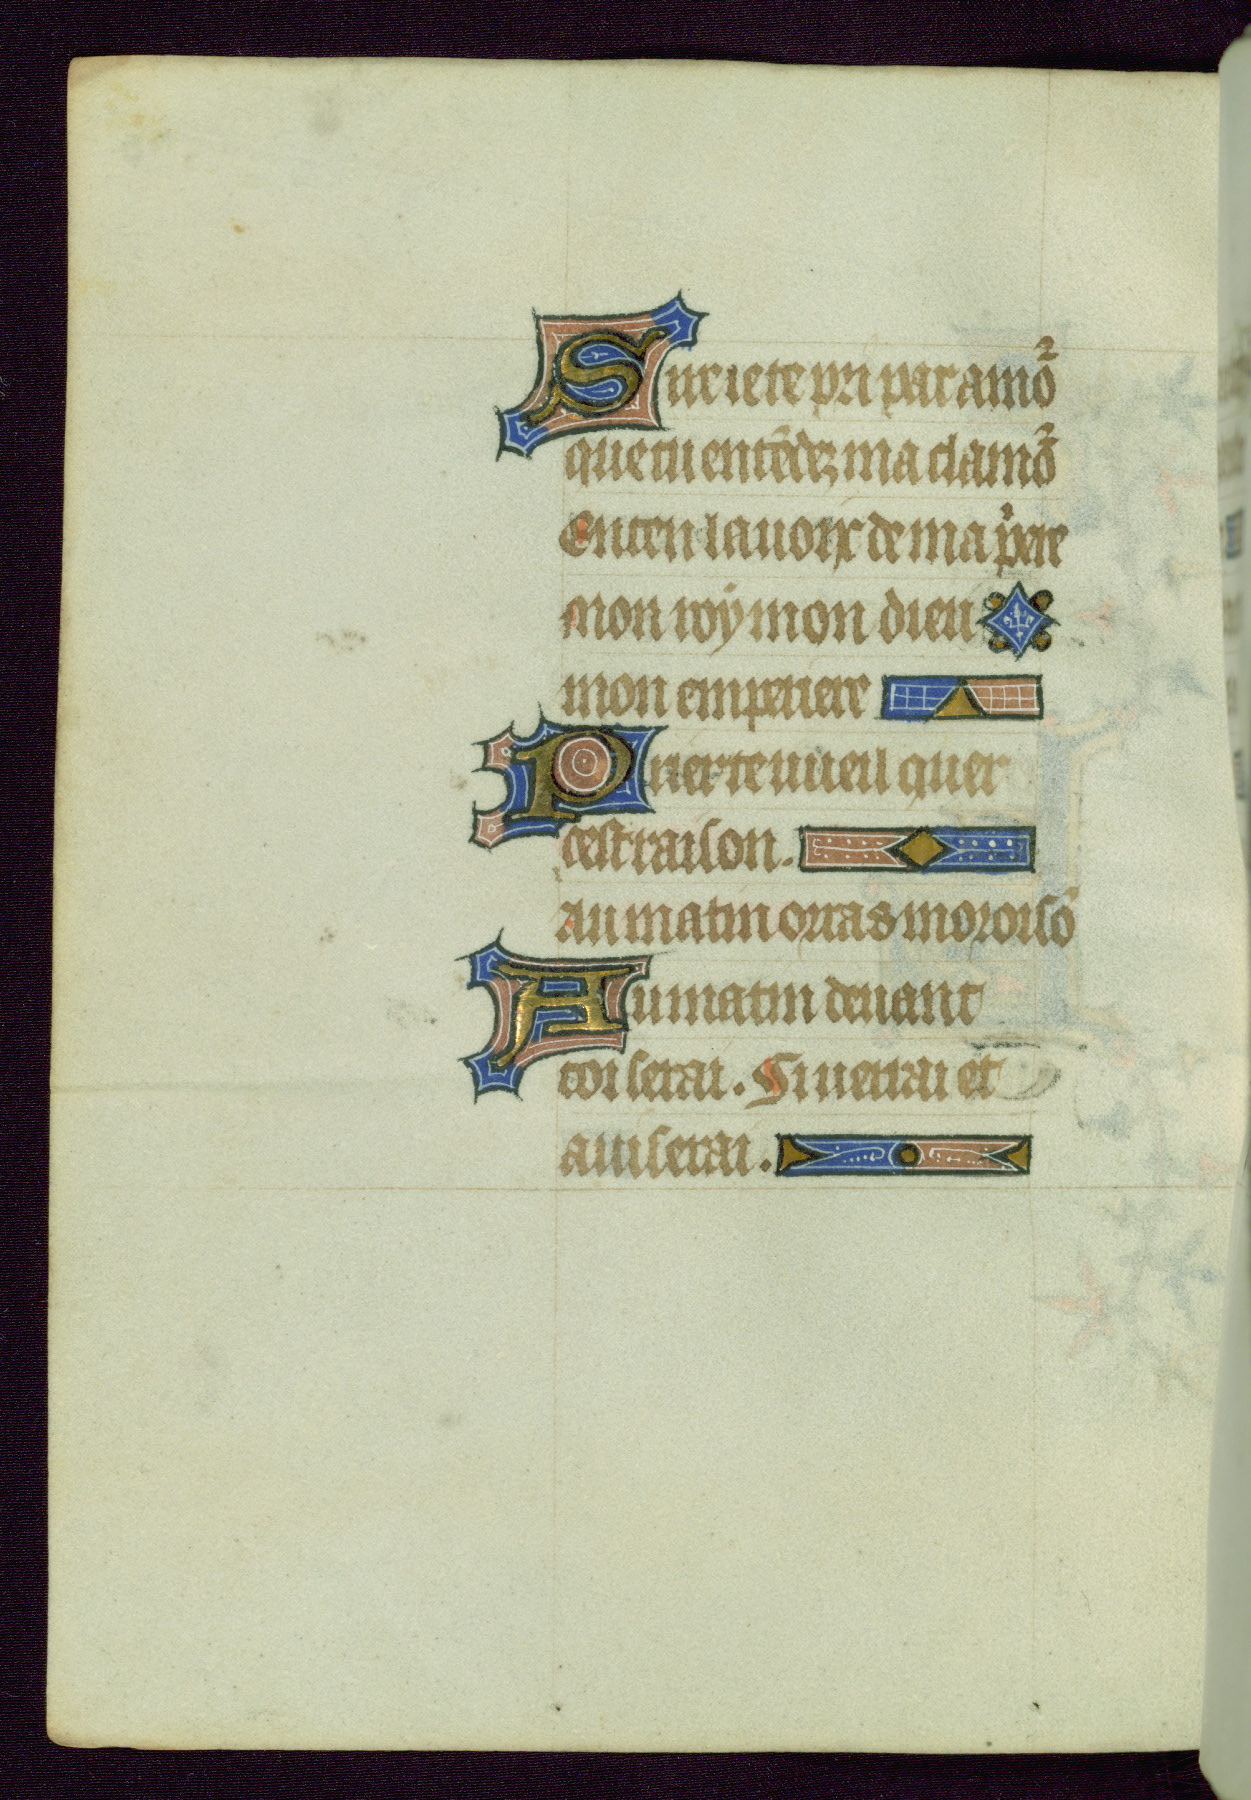 Sire ie te pri par amo᷑
que tu entēdez ma clamo᷑
Enten la uoix de ma p̃ere
Mon roy mon dieu
mon emperiere
Prier te uueil quer
cest raison.
Au matin orras moroisō
Au matin deuant
toi serai. Si uerrai et
auiserai.